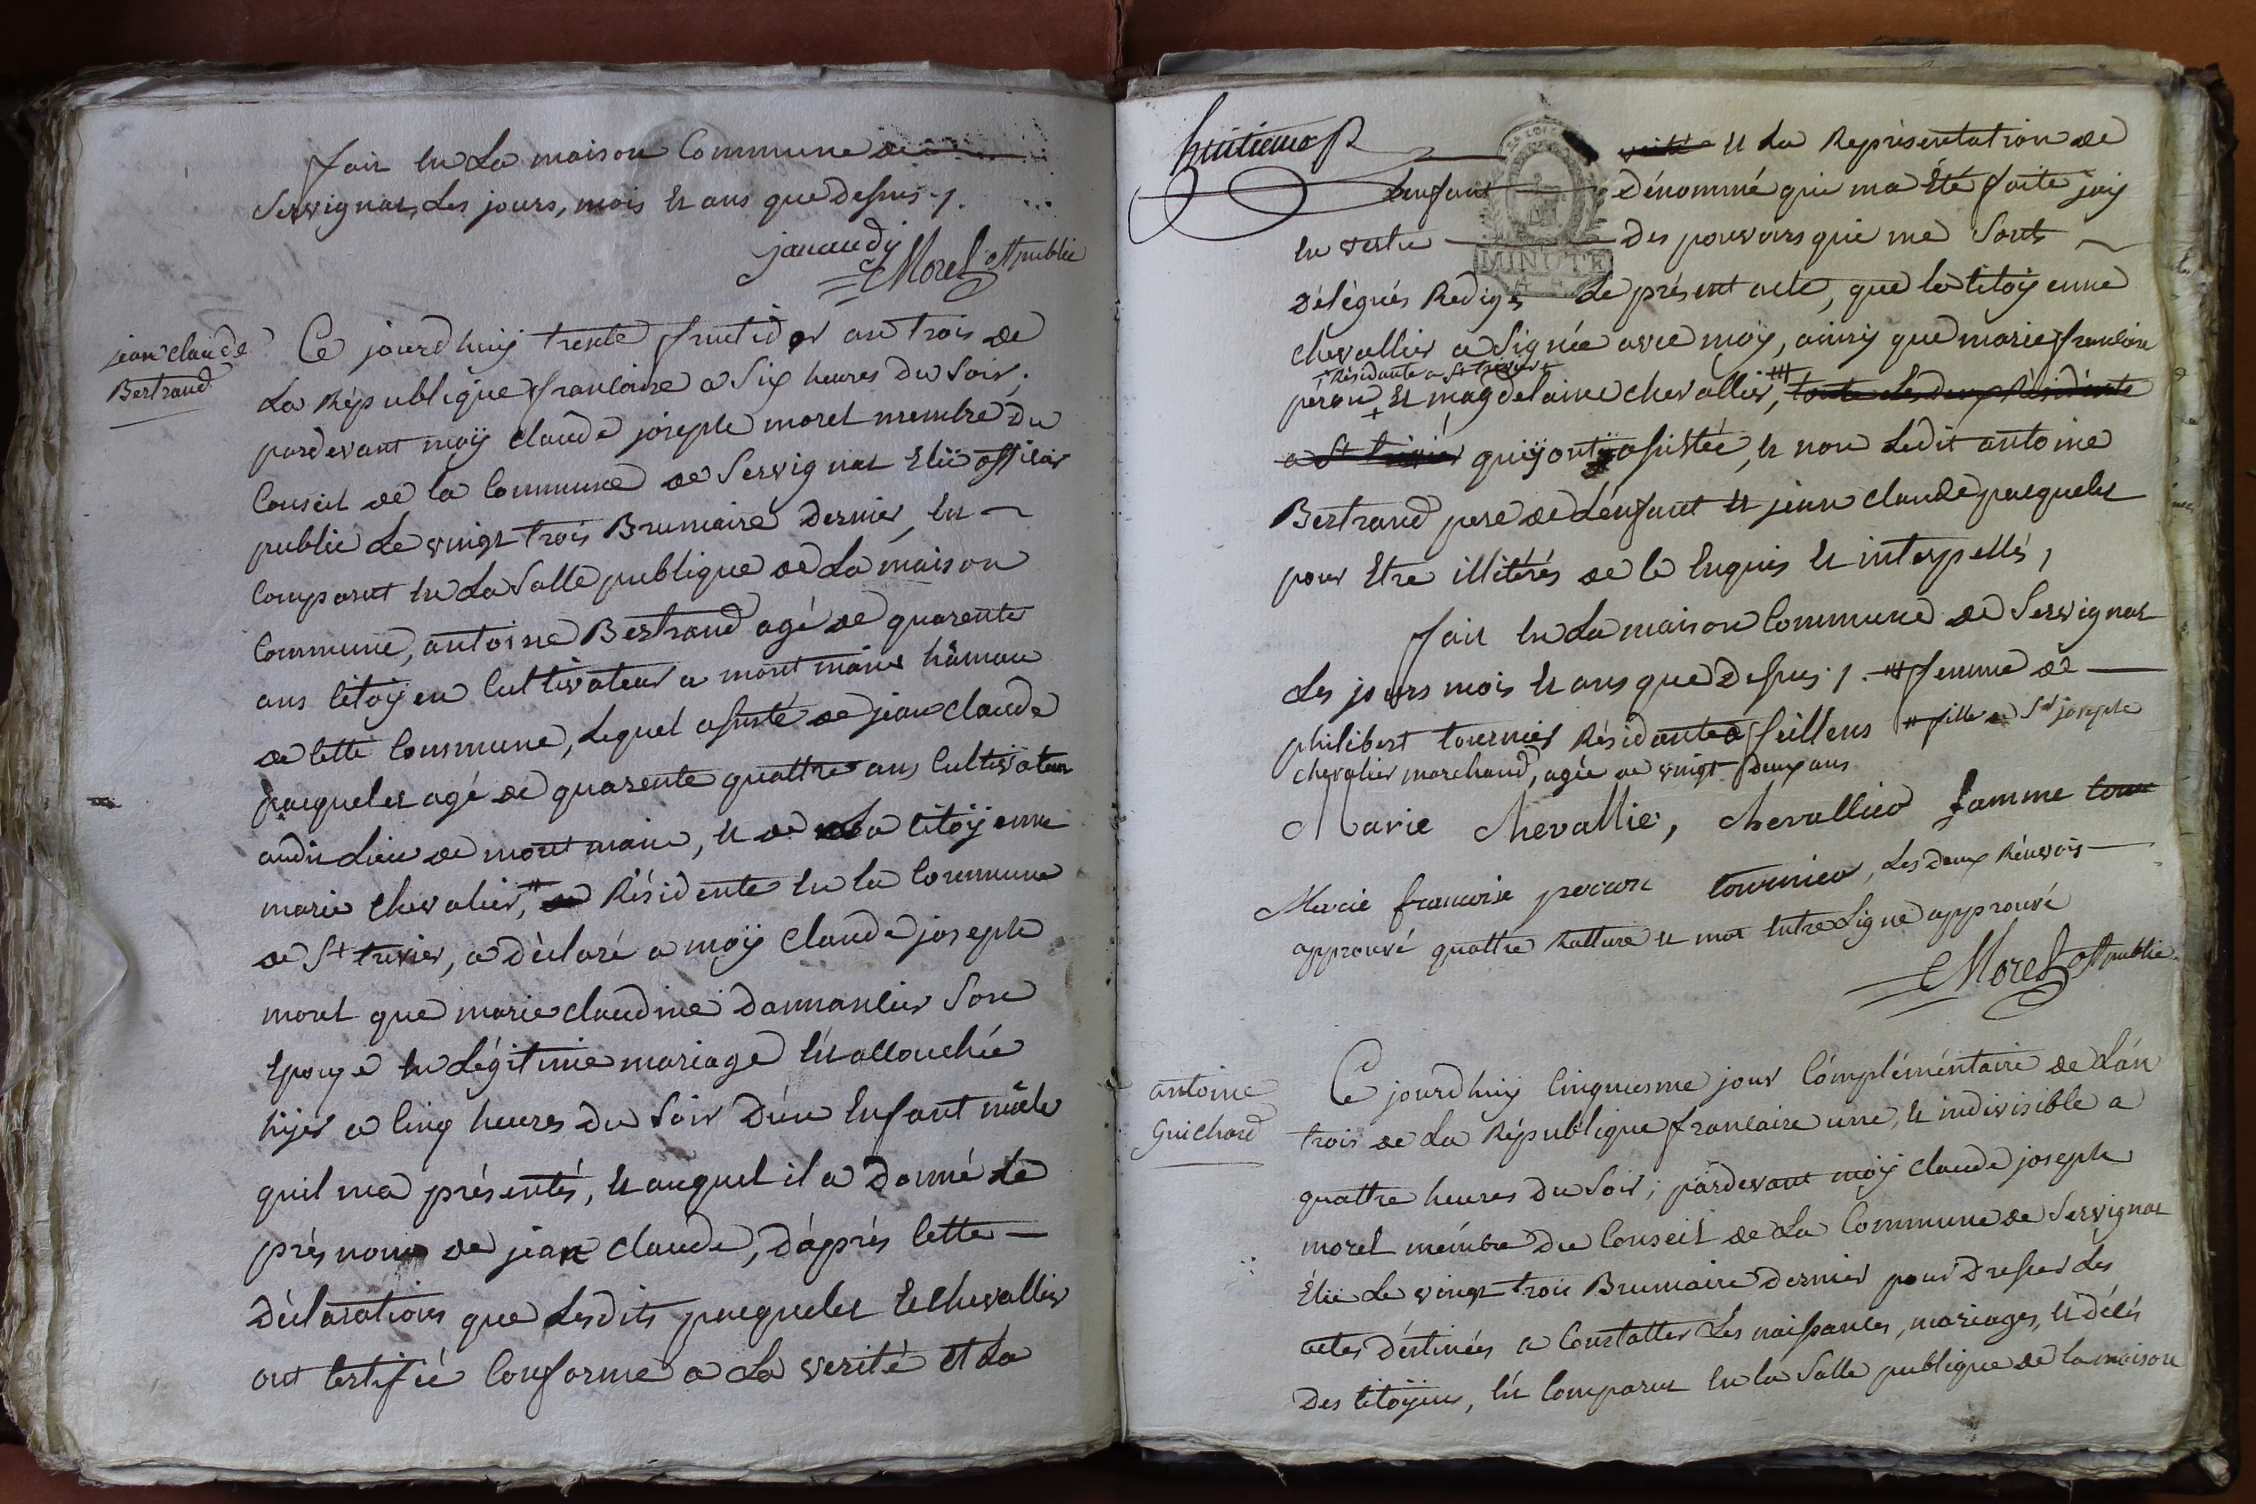 fait en la maison Commune de
Servignat, les jours, mois et ans que dessus ./.
janaudy
Morel off public
jean claude
Bertrand
Ce jourdhuÿ trente fructidor an trois de
la République francaise a Six heures du Soir,
pardevant moÿ claude joseph morel membre du
Conseil de la Commune de Servignat Elü officier
public le vingt trois Brumaire dernier, en
Comparut en la Salle publique de la maison
Commune, antoine Bertrand agé de quarente
ans Citoÿen Cultivateur a mont main hâmau
de Cette Commune, lequel assisté de jean claude
pacquelet agé de quarente quattre ans Cultivateur
audit lieu de mont main, et de la Citoÿenne
marie chevalier, # Résidente en la Commune
de St trivier, a déclaré a moÿ Claude joseph
morel que marie claudine dannancier Son
Epouse en légitime mariage est accouchée
hÿer a Cinq heures du Soir d'un Enfant mâle
quil ma présentés, et auquel il a donné le
prés noms de jean claude, d'áprés Cette
déclarations que lesdits pacquelet et chevallier
ont Certifié Conforme a la verité et la
huitieme R
LA LOI
MINUTE
verité et la Représentation de
l'enfant dénommé qui ma Été faite jaÿ
en vertu des pouvoirs qui me Sont
délégués Redigé le présent acte, que la Citoÿenne
chevallier a Signée avec moÿ, ainsÿ que marie francoise
+ Résidante a St trivier +
peron + et magdelaine chevallier, ## toute les deux Résidente
a St trivier quiÿ ont assistée, et non ledit antoine
Bertrand pere de l'enfant et jean claude pacquelet
pour Etre illitérés de ce Enquis et interpellés,
fait en la maison Commune de Servignat
les jours mois et ans que dessus ./. ## femme de
philibert tournier Résidante a feillens # fille de Sr joseph
chevalier marchand, agée de vingt deux ans
Marie chevallie, chevallier famme tour
Marie francoise peron tournier, les deux Rénvois
approuvé quattre Ratture et mot Entre ligne approuvé
Morel off public
antoine
Guichard
Ce jourdhuÿ Cinquiesme jour Cómpléméntaire de l'án
trois de la République francaise une, et indivisible a
quattre heures du Soir, pardevant moÿ claude joseph
morel mémbre du Conseil de la Commune de Servignat
Élü le vingt trois Brumaire dernier pour dresser les
actes déstinées a Constatter les naissances, mariages, et décés
des Citoÿens, est Comparut en la Salle publique de la maison